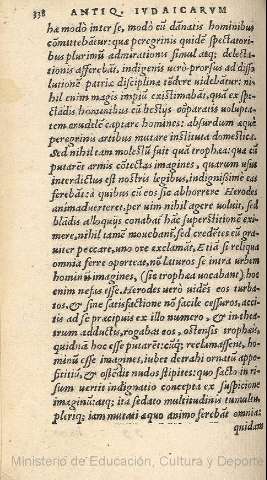 338 ANTIQ. IVDAICARVM
hæ modò inter se, modò cũ dãnatis hominibus
cõmittebãtur: quæ peregrinis quidẽ spectatori-
bus plurimũ admirationis simul atq; delecta-
tionis afferebãt, indigenis verò prorsus ad disso
lutionẽ patriæ disciplinæ tẽdere videbãtur: ni-
hil enim magis impiũ existimabãt, quã ex spe-
ctãdis hominibus cũ bestijs cõparatis volupta-
tem crudelẽ captare homines: absurdum æquè
peregrinis artibus mutare instituta domestica.
Sed nihil tam molestũ fuit quã trophæa: quæ cũ
putarẽt armis cõtectas imagines, quarum usus
interdictus est nostris legibus, indignissimè ea
ferebãt: à quibus cũ eos sic abhorrere Herodes
animaduerteret, per uim nihil agere uoluit, sed
blãdis alloquijs conabat hãc superstitionẽ exi-
mere, nihil tamẽ mouebant, sed credẽtes eũ gra-
uiter peccare, uno ore exclamãt, Etiã si reliqua
omnia ferre oporteat, nõ laturos se intra urbem
hominũ imagines, (sic trophæa uocabant) hoc
enim nefas esse. Herodes verò uidẽs eos turba-
tos, & sine satisfactione nõ facile cessuros, acci-
tis ad se præcipuis ex illo numero, & in thea-
trum adductis, rogabat eos, ostensis trophæis,
quidnã hoc esse putarẽt: cũq; reclamassent, ho-
minũ esse imagines, iubet detrahi ornatũ appo-
sititiũ, & ostẽdit nudos stipites: quo facto in ri-
sum uertit indignatio concepta ex suspicione
imaginũ: atq; ita sedato multitudinis tumultu,
pleriq; iam mutati æquo animo ferebãt omnia:
quidam
Ministerio de Educación, Cultura y Deporte